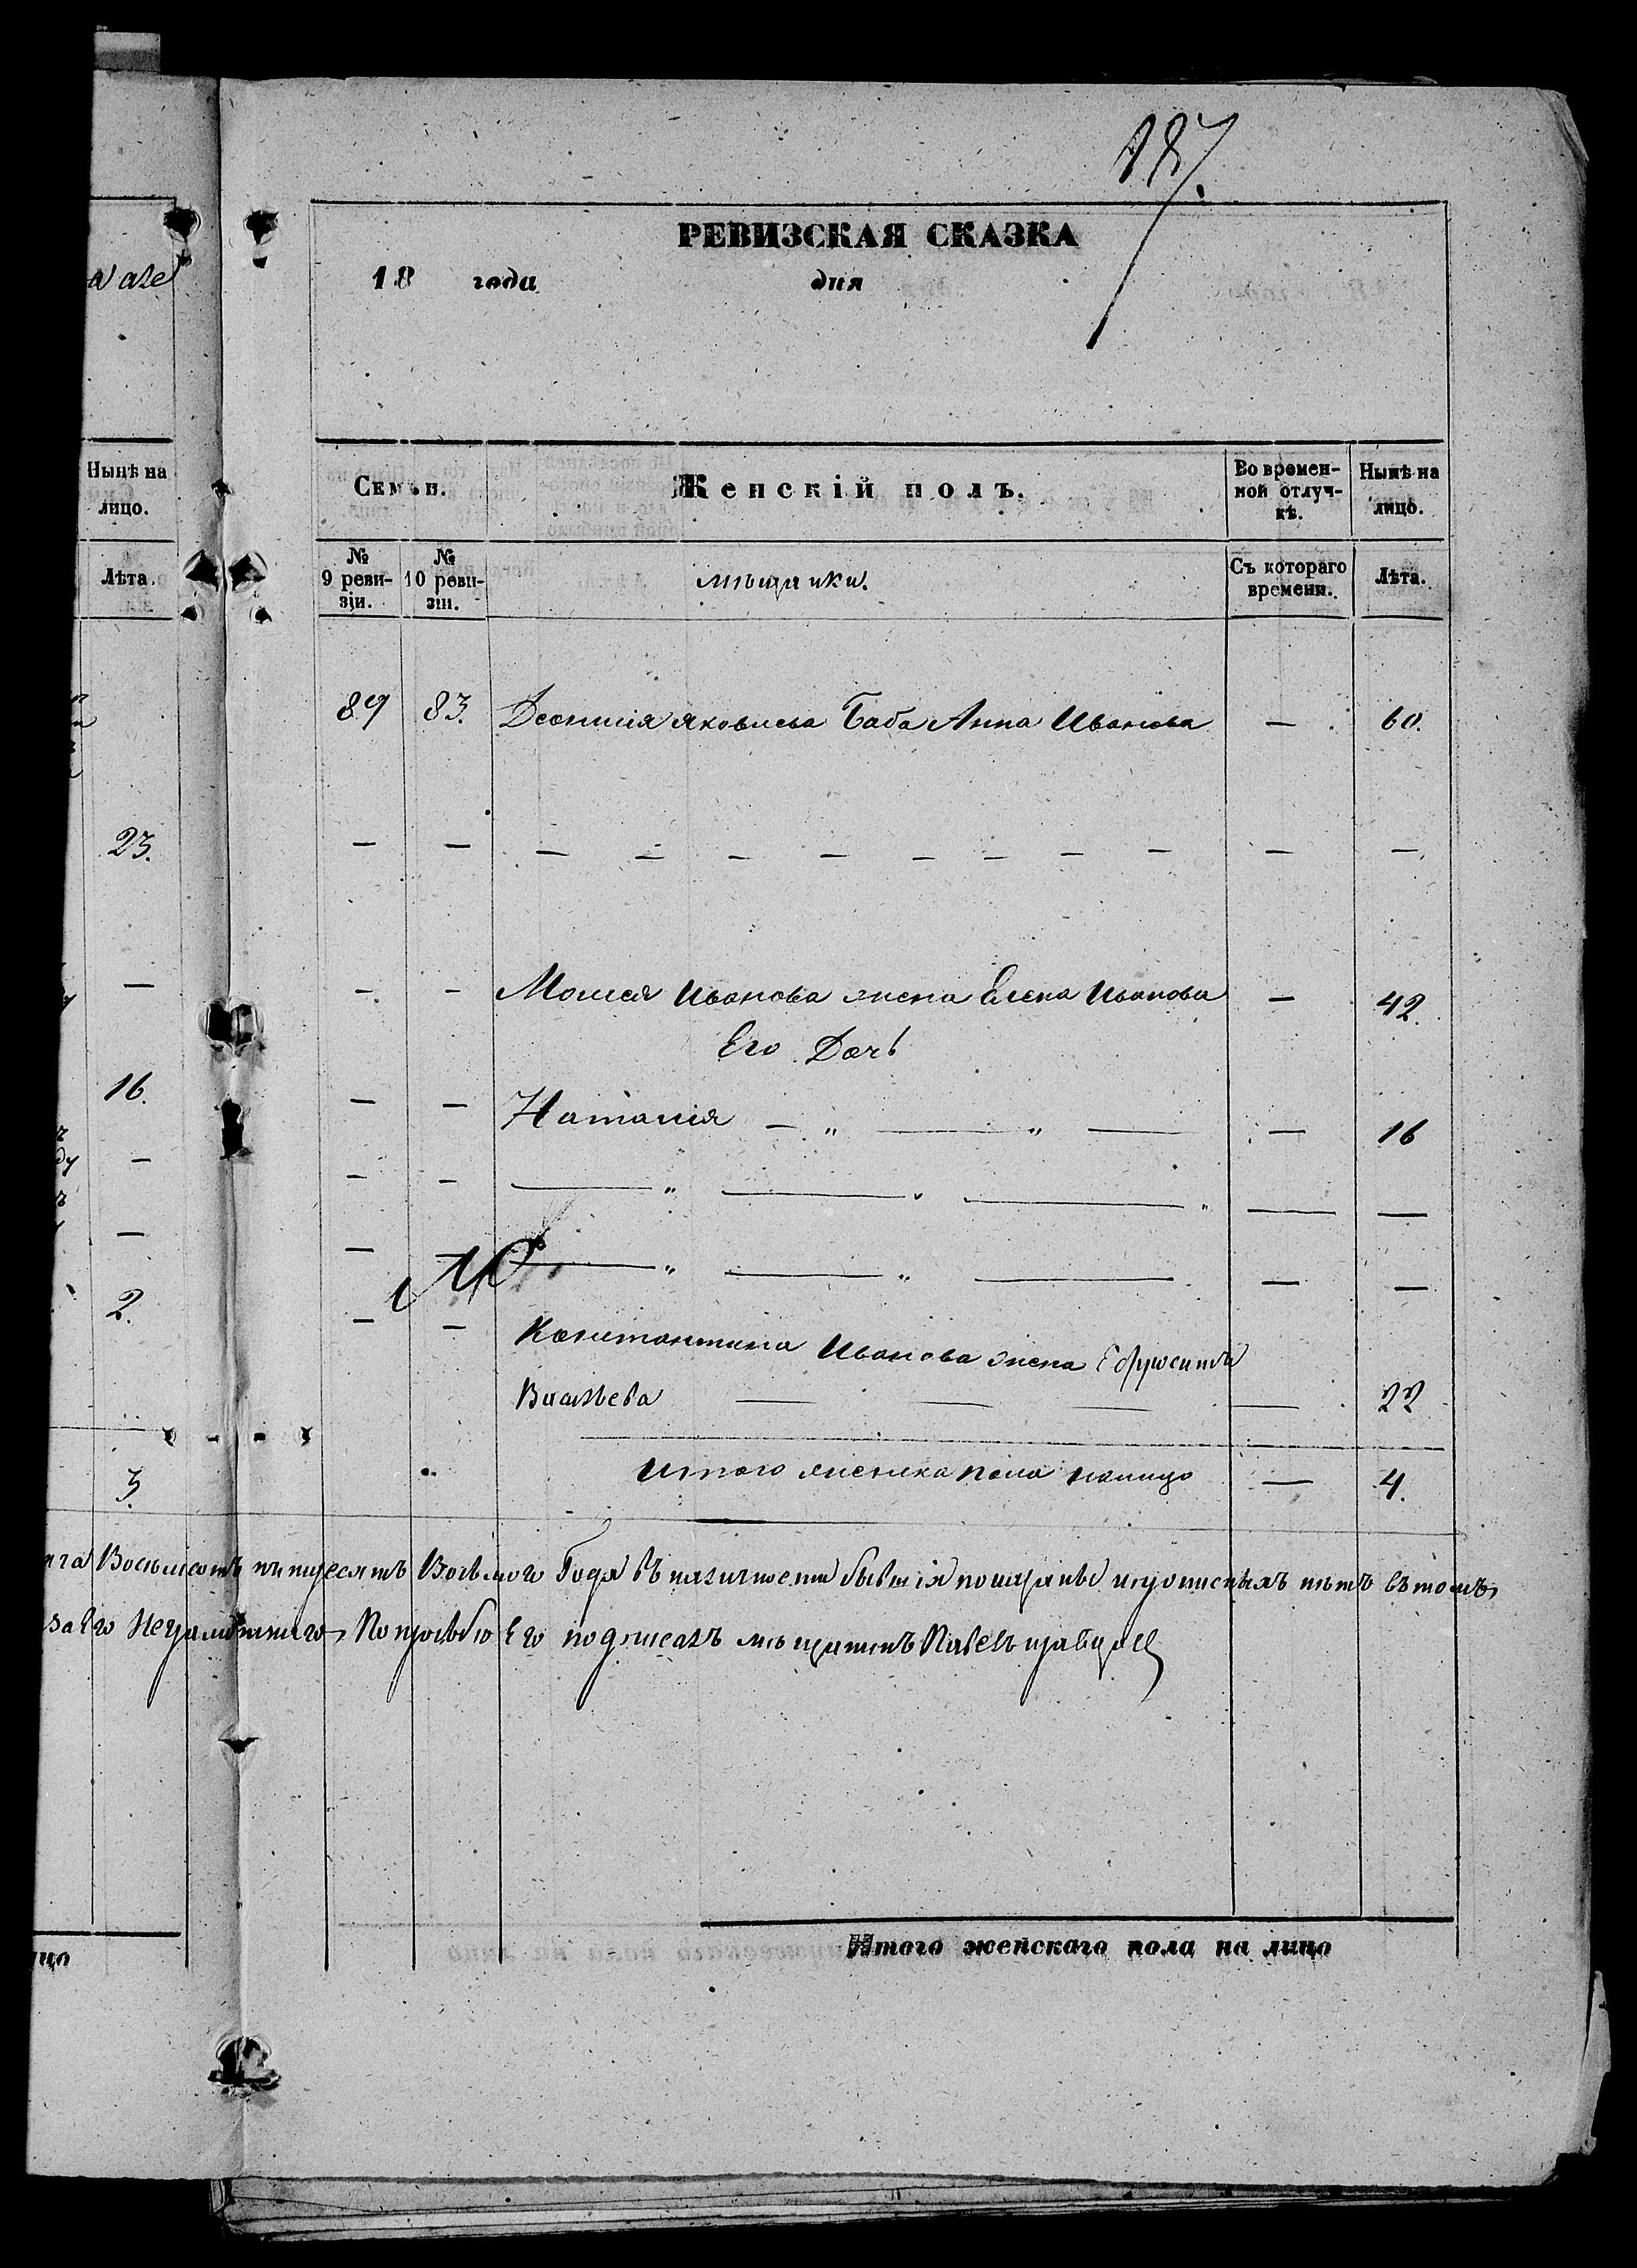 187.
РЕВИЗСКАЯ СКАЗКА
18 года дня
Нынѣ на лицо.
Лѣта.
23.
—
16.
—
—
2.
3.
Семьи.
Женскій полъ.
Во времен-
ной отлуч-
кѣ.
Нынѣ на
лицо.
№
9 реви-
зіи.
№
10 реви-
зіи.
мѣщанки.
Съ котораго
времени.
Лѣта.
89 83. Деонисія Яковлева Баба Анна Иванова — 60.
— — — — — — — — — — — —
— — Моисея Иванова жена Елена Иванова — 42.
Его Дочь
— — Наталія — „ — „ — — 16
— — — „ — „ — „ — —
— — „ — „ — — —
— — Константина Иванова жена Ефросинья
Васильева — — — — 22
Итого женска пола налицо — 4.
Восемьсотъ пятдесятъ Восьмого Года въ наличности бывшія нѣтъ въ томъ
за Его Неграмотнаго, По прозьбѣ Его подписалъ мѣщанинъ Павелъ
Итого женскаго пола на лицо